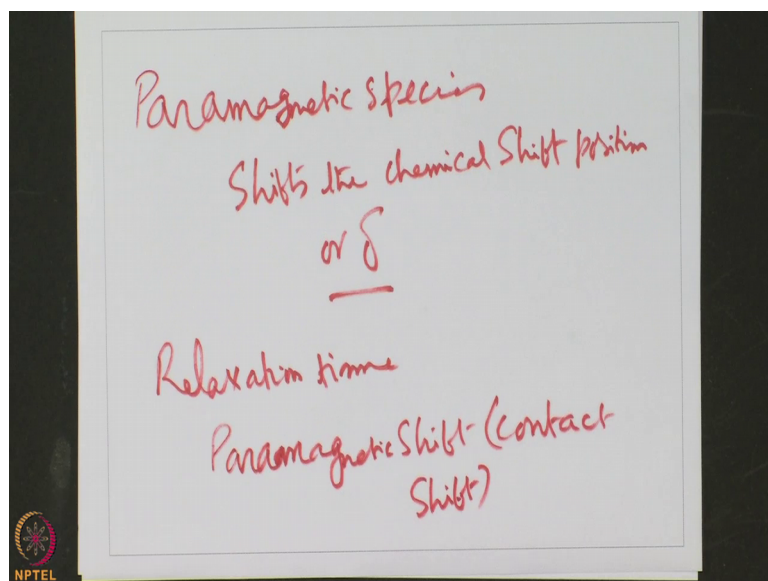 Paramagnetic species
Shifts the chemical Shift position
or δ
Relaxation time
Paramagnetic Shift (contact
Shift)
NPTEL